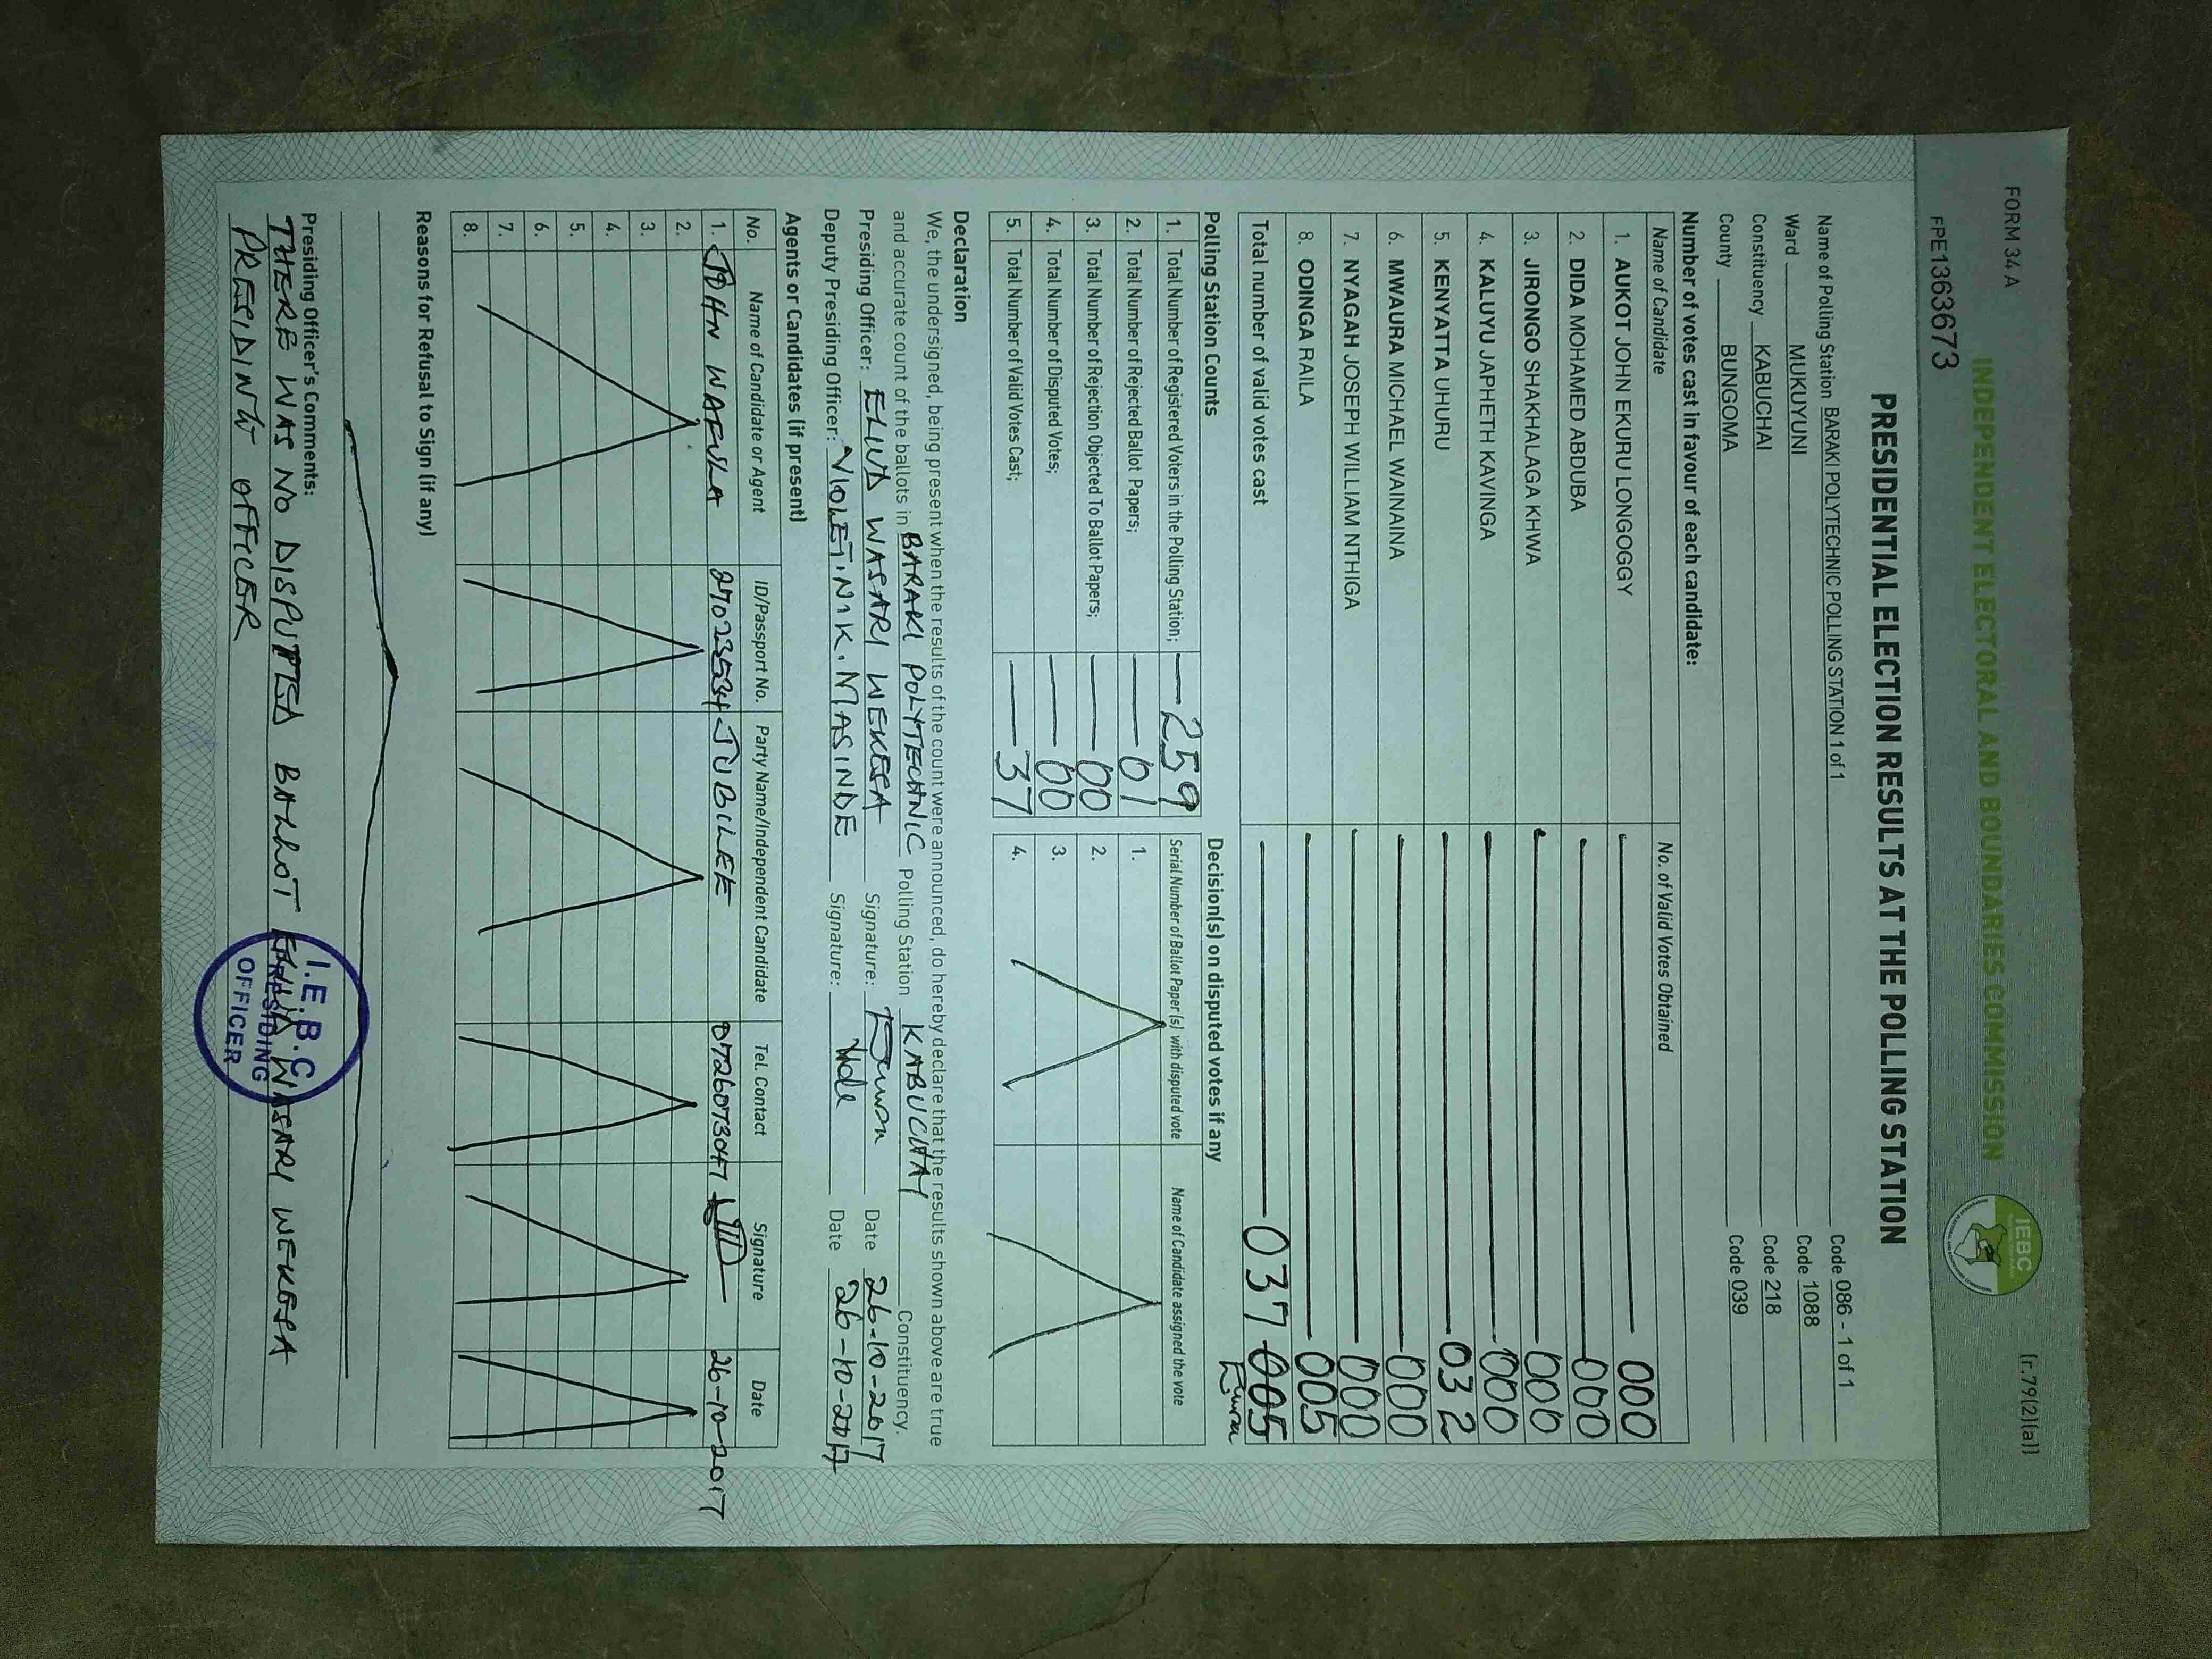 FORM 34 A
(r.79(2)(a))
INDEPENDENT ELECTORAL AND BOUNDARIES COMMISSION
IEBC
FPE1363673
PRESIDENTIAL ELECTION RESULTS AT THE POLLING STATION
Name of Polling Station BARAKI POLYTECHNIC POLLING STATION 1 of 1 Code 086 - 1 of 1
Ward MUKUYUNI Code 1088
Constituency KABUCHAI Code 218
County BUNGOMA Code 039
Number of votes cast in favour of each candidate:
Name of Candidate No. of Valid Votes Obtained
1. AUKOT JOHN EKURU LONGOGGY 000
2. DIDA MOHAMED ABDUBA 000
3. JIRONGO SHAKHALAGA KHWA 000
4. KALUYU JAPHETH KAVINGA 000
5. KENYATTA UHURU 032
6. MWAURA MICHAEL WAINAINA 000
7. NYAGAH JOSEPH WILLIAM NTHIGA 000
8. ODINGA RAILA 005
Total number of valid votes cast 037 005
Polling Station Counts
1. Total Number of Registered Voters in the Polling Station; 259
2. Total Number of Rejected Ballot Papers; 01
3. Total Number of Rejection Objected To Ballot Papers; 00
4. Total Number of Disputed Votes; 00
5. Total Number of Valid Votes Cast; 37
Decision(s) on disputed votes if any
Serial Number of Ballot Paper (s) with disputed vote Name of Candidate assigned the vote
1.
2.
3.
4.
Declaration
We, the undersigned, being present when the results of the count were announced, do hereby declare that the results shown above are true
and accurate count of the ballots in BARAKI POLYTECHNIC Polling Station KABUCHAI Constituency.
Presiding Officer: ELIUD WASARI WEKESA Signature: Date 26-10-2017
Deputy Presiding Officer: VIOLET.N.K.MASINDE Signature: Date 26-10-2017
Agents or Candidates (if present)
No. Name of Candidate or Agent ID/Passport No. Party Name/Independent Candidate Tel. Contact Signature Date
1. JOHN WAFULA 27023534 JUBILEE 0726073047 26-10-2017
2.
3.
4.
5.
6.
7.
8.
Reasons for Refusal to Sign (if any)
Presiding Officer's Comments:
THERE WAS NO DISPUTTED BALLOT ELIUD WASARI WEKESA
PRESIDING OFFICER
I.E.B.C
PRESIDING
OFFICER